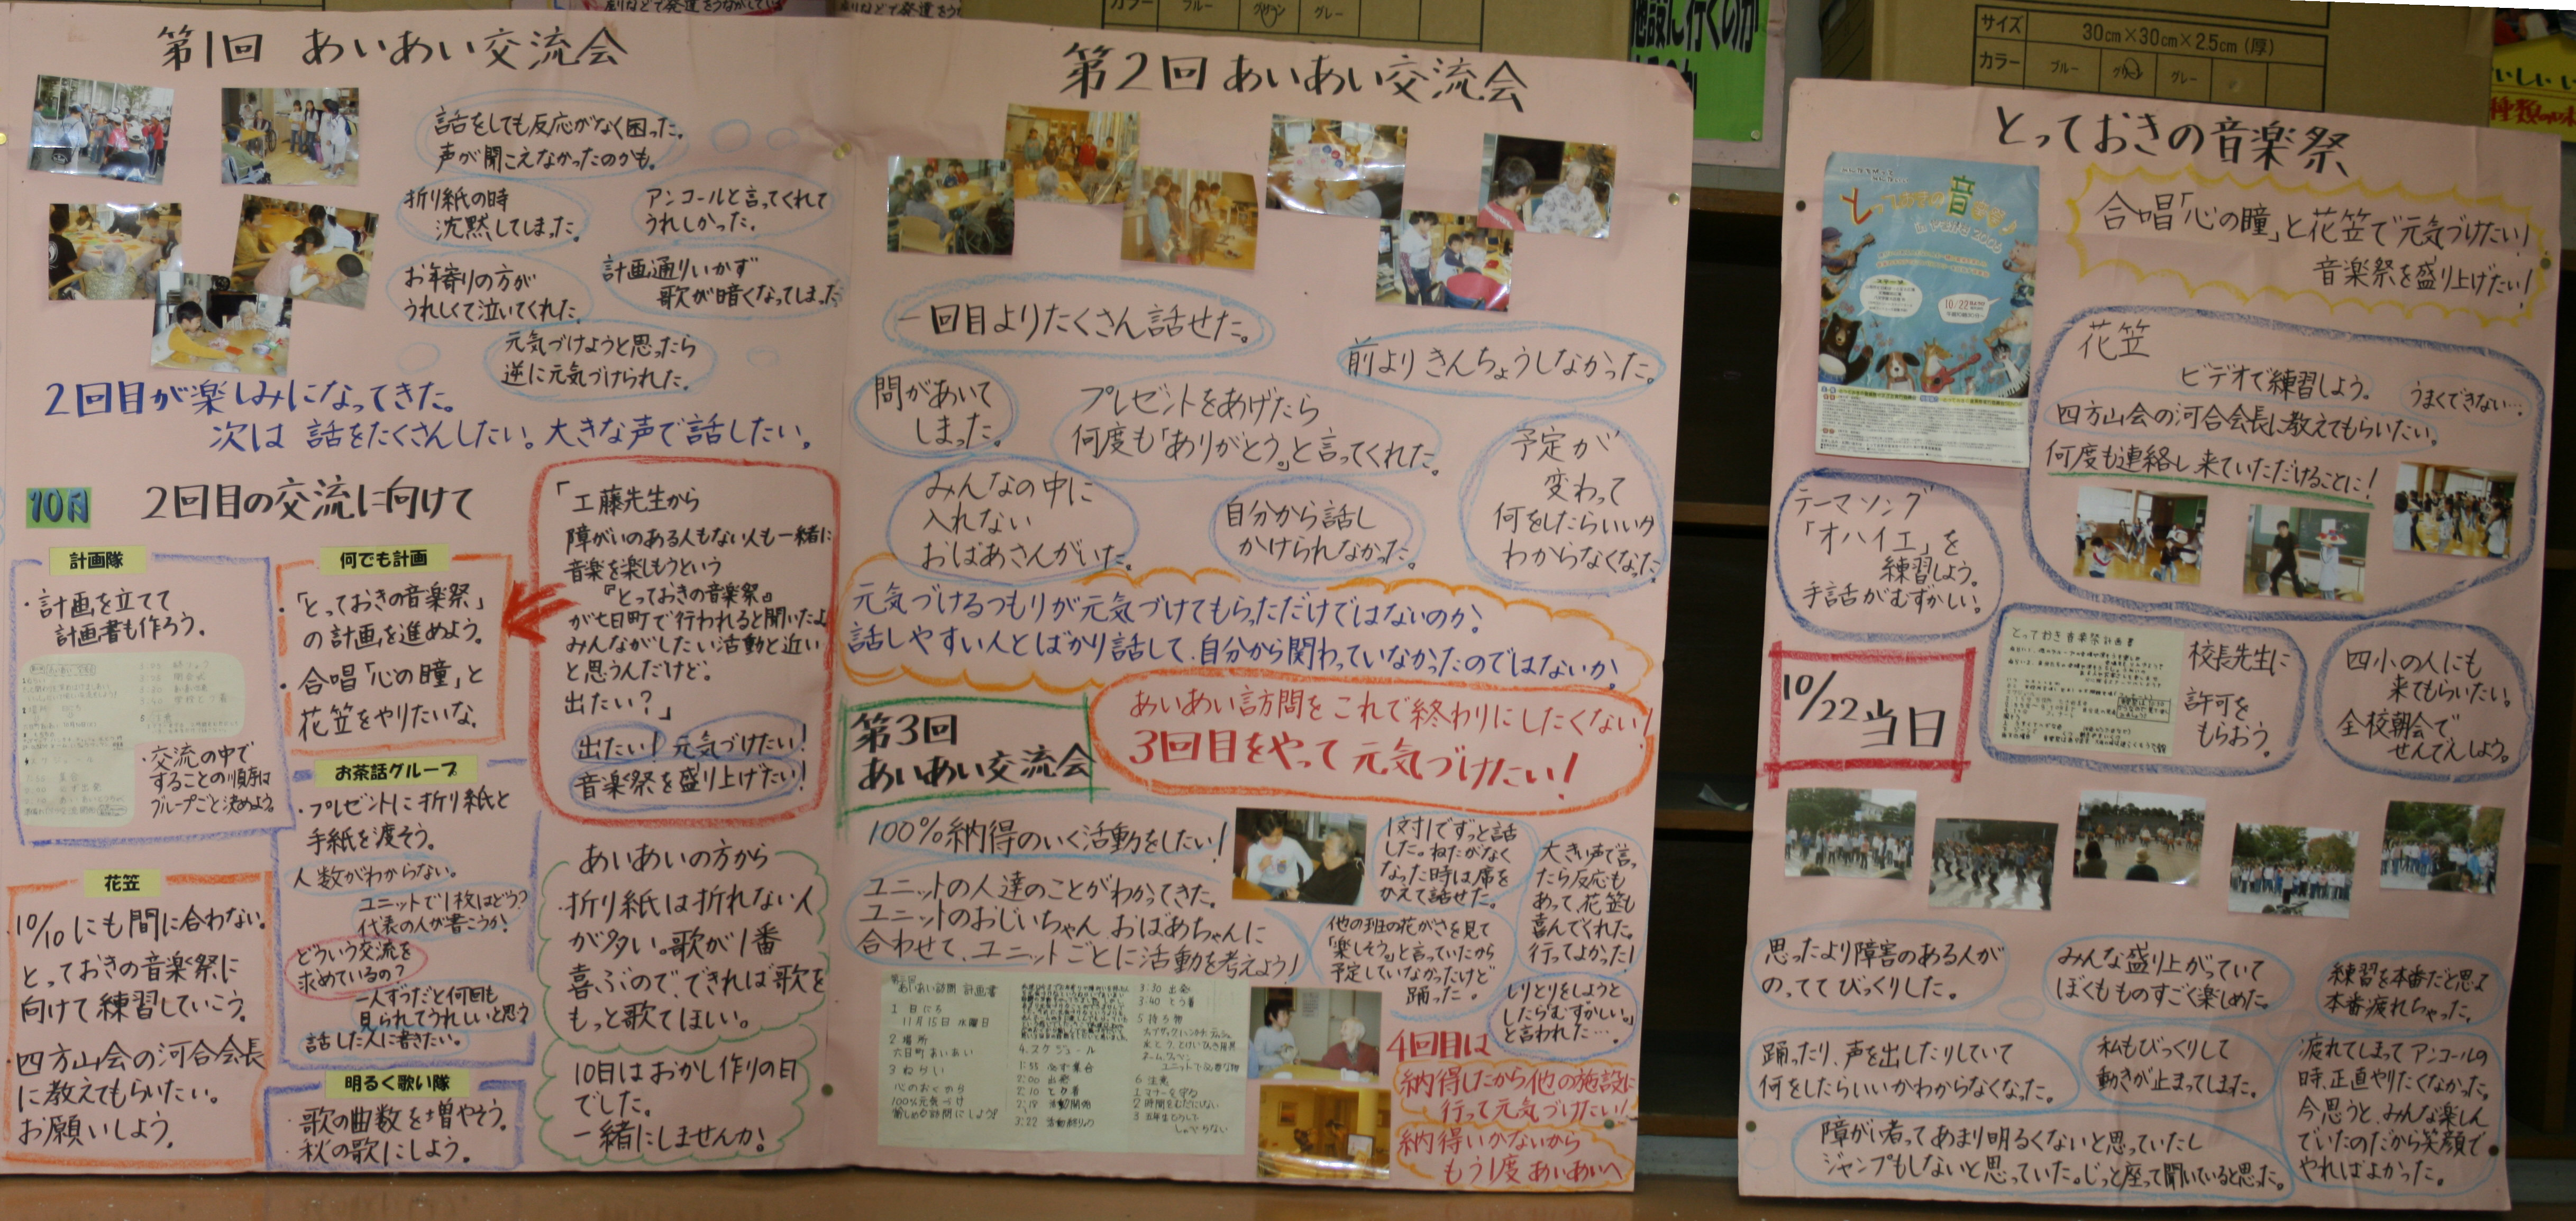 第1回 あいあい交流会
話をしても反応がなく困った。
声が聞こえなかったのかも。
折り紙の時
沈黙してしまった。
アンコールと言ってくれて
うれしかった。
お年寄りの方が
うれしくて泣いてくれた。
計画通りいかず
歌が暗くなってしまった
元気づけようと思ったら
逆に元気づけられた。
2回目が楽しみになってきた。
次は 話をたくさんしたい。大きな声で話したい。
10月
2回目の交流に向けて
計画隊
・計画を立てて
計画書も作ろう。
・交流の中で
することの順序は
グループごと決めよう。
何でも計画
・「とっておきの音楽祭」
の計画を進めよう。
・合唱「心の瞳」と
花笠をやりたいな。
花笠
・10/10にも間に合わない。
とっておきの音楽祭に
向けて練習していこう。
・四方山会の河合会長
に教えてもらいたい。
お願いしよう。
お茶話グループ
・プレゼントに折り紙と
手紙を渡そう。
人数がわからない。
ユニットで1枚はどう?
代表の人が書こうか!
どういう交流を
求めているの?
一人ずつだと何回も
見られてうれしいと思う
話した人に書きたい。
明るく歌い隊
・歌の曲数を増やそう。
・秋の歌にしよう。
「工藤先生から
障がいのある人もない人も一緒に
音楽を楽しもうという
『とっておきの音楽祭』
が七日町で行われると聞いたよ
みんながしたい活動と近い
と思うんだけど。
出たい?」
出たい! 元気づけたい!
音楽祭を盛り上げたい!
あいあいの方から
・折り紙は折れない人
が多い。歌が1番
喜ぶので、できれば歌を
もっと歌てほしい。
10日はおかし作りの日
でした。
一緒にしませんか!
第2回 あいあい交流会
一回目よりたくさん話せた。
前よりきんちょうしなかった。
間があいて
しまった。
プレゼントをあげたら
何度も「ありがとう。」と言ってくれた。
予定が
変わって
何をしたらいいか
わからなくなった。
みんなの中に
入れない
おばあさんがいた。
自分から話し
かけられなかった。
元気づけるつもりが元気づけてもらっただけではないのか!
話しやすい人とばかり話して、自分から関わっていなかったのではないか!
第3回
あいあい交流会
あいあい訪問をこれで終わりにしたくない!
3回目をやって元気づけたい!
100%納得のいく活動をしたい!
ユニットの人達のことがわかってきた。
ユニットのおじいちゃん おばあちゃんに
合わせて、ユニットごとに活動を考えよう!
1対1でずっと話
した。ねたがなく
なった時は席を
かえて話せた。
大きい声で言っ
たら反応も
あって、花笠も
喜んでくれた。
行ってよかった!
他の班の花がさを見て
「楽しそう。」と言っていたから
予定していなかったけど
踊った。
しりとりをしようと
したら「むずかしい。」
と言われた…
あいあい訪問 計画書
1 日にち
11月15日 水曜日
2 場所
六日町 あいあい
3 ねらい
4 スケジュール
2:00 出発
3:30 出発
3:40 とう着
5 持ち物
6 注意
4回目は
納得したから他の施設に
行って元気づけたい!
納得いかないから
もう1度 あいあいへ
とっておきの音楽祭
合唱「心の瞳」と花笠で元気づけたい!
音楽祭を盛り上げたい!
花笠
ビデオで練習しよう。
うまくできない…
四方山会の河合会長に教えてもらいたい。
何度も連絡し来ていただけることに!
テーマソング
「オハイエ」を
練習しよう。
手話がむずかしい。
とっておき音楽祭計画書
校長先生に
許可を
もらおう。
四小の人にも
来てもらいたい。
全校朝会で
せんでんしよう。
10/22当日
思ったより障害のある人が
のっててびっくりした。
みんな盛り上がっていて
ぼくもものすごく楽しめた。
練習を本番だと思って
本番疲れちゃった。
踊ったり、声を出したりしていて
何をしたらいいかわからなくなった。
私もびっくりして
動きが止まってしまた。
疲れてしまってアンコールの
時、正直やりたくなかった。
今思うと、みんな楽しん
でいたのだから笑顔で
やればよかった。
障がい者ってあまり明るくないと思っていたし
ジャンプもしないと思っていた。じっと座って聞いていると思った。
サイズ 30cm×30cm×2.5cm(厚)
カラー ブルー グリーン グレー